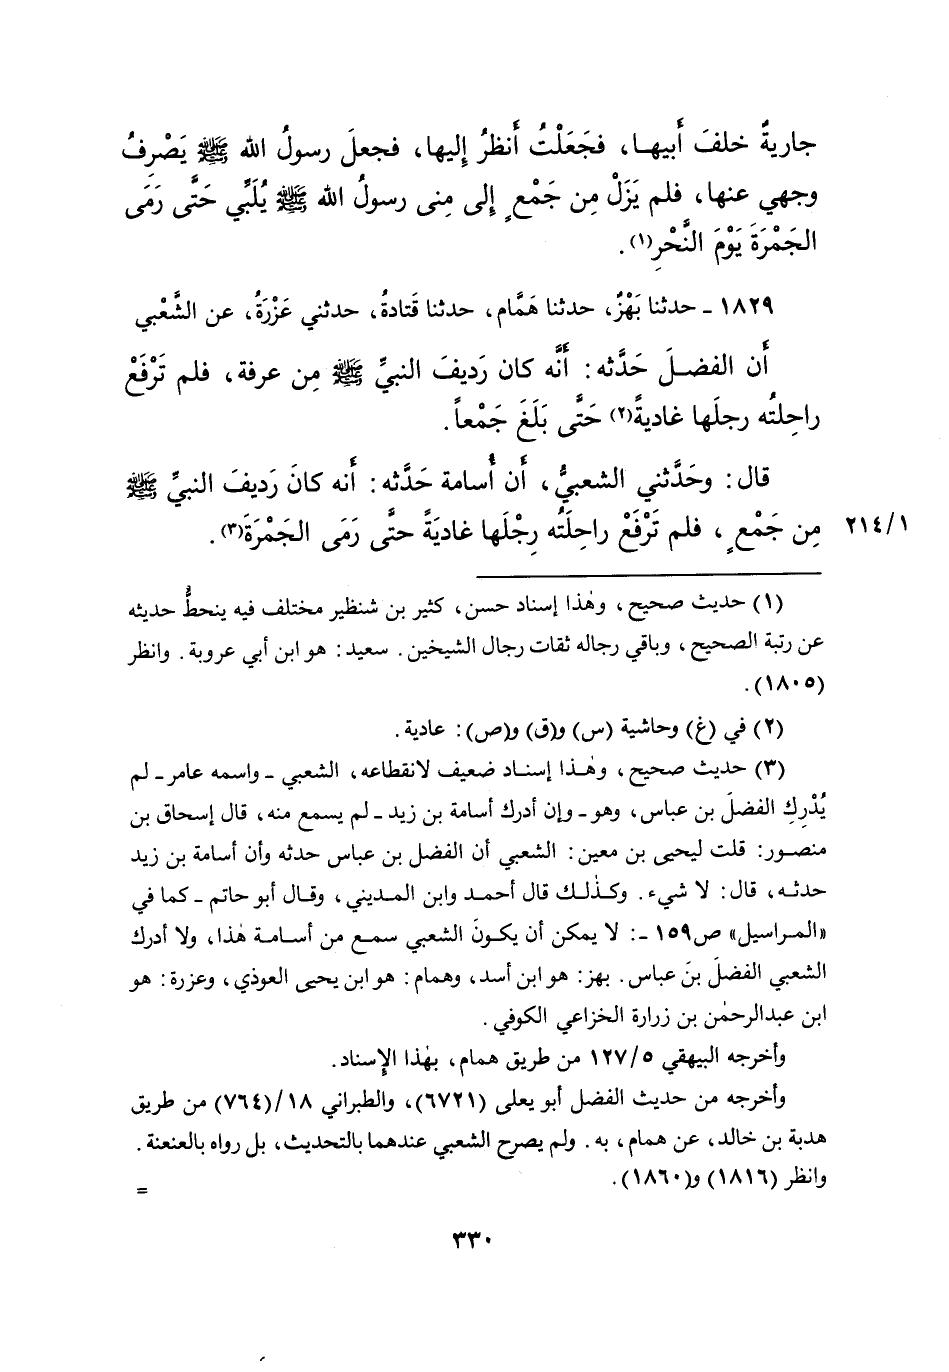 جاريةٌ خلفَ أَبيهـا، فجَعَلْتُ أَنظرُ إِليها، فجعلَ رسولُ الله ﷺ يَصْرِفُ
وجهي عنها، فلم يَزَلْ مِن جَمْعٍ إلى مِنى رسولُ الله ﷺ يُلَبِّي حَتَّى رَمَى
الجَمْرَةَ يَوْمَ النَّحْرِ(١).
١٨٢٩ ـ حدثنا بَهْزٌ، حدثنا هَمَّام، حدثنا قَتادةُ، حدثني عَزْرَةُ، عن الشَّعْبي
أَن الفضلَ حَدَّثه: أَنَّه كان رَديفَ النبيِّ ﷺ مِن عرفة، فلم تَرْفَعْ
راحِلتُه رجلَها غاديةً(٢) حَتَّى بَلَغَ جَمْعاً.
قال: وحَدَّثني الشعبيُّ، أَن أُسامة حَدَّثه: أَنه كانَ رَديفَ النبيِّ ﷺ
مِن جَمْعٍ، فلم تَرْفَعْ راحِلَتُه رِجْلَها غاديَةً حتَّى رَمَى الجَمْرَةَ(٣).
٢١٤/١
(١) حديث صحيح، وهٰذا إسناد حسن، كثير بن شنظير مختلف فيه ينحطُّ حديثه
عن رتبة الصحيح، وباقي رجاله ثقات رجال الشيخين. سعيد: هو ابن أبي عروبة. وانظر
(١٨٠٥).
(٢) في (غ) وحاشية (س) و(ق) و(ص): عادية.
(٣) حديث صحيح، وهٰـذا إسنـاد ضعيف لانقطاعه، الشعبي ـ واسمه عامر ـ لم
يُدْرِكِ الفضلَ بن عباس، وهو ـ وإن أدرك أسامة بن زيد ـ لم يسمع منه، قال إسحاق بن
منصـور: قلت ليحيى بن معين: الشعبي أن الفضل بن عباس حدثه وأن أسامة بن زيد
حدثـه، قال: لا شيء. وكـذٰلـك قال أحمـد وابن المـديني، وقـال أبو حاتم ـ كما في
«المـراسيل» ص١٥٩ ـ: لا يمكن أن يكـونَ الشعبي سمـع من أسـامـة هٰذا، ولا أدرك
الشعبي الفضلَ بنَ عباس. بهز: هو ابن أسد، وهمام: هو ابن يحيى العوذي، وعزرة: هو
ابن عبدالرحمٰن بن زرارة الخزاعي الكوفي.
وأخرجه البيهقي ١٢٧/٥ من طريق همام، بهٰذا الإِسناد.
وأخرجه من حديث الفضل أبو يعلى (٦٧٢١)، والطبراني ١٨/(٧٦٤) من طريق
هدبة بن خالد، عن همام، به. ولم يصرح الشعبي عندهما بالتحديث، بل رواه بالعنعنة.
وانظر (١٨١٦) و(١٨٦٠).
=
٣٣٠